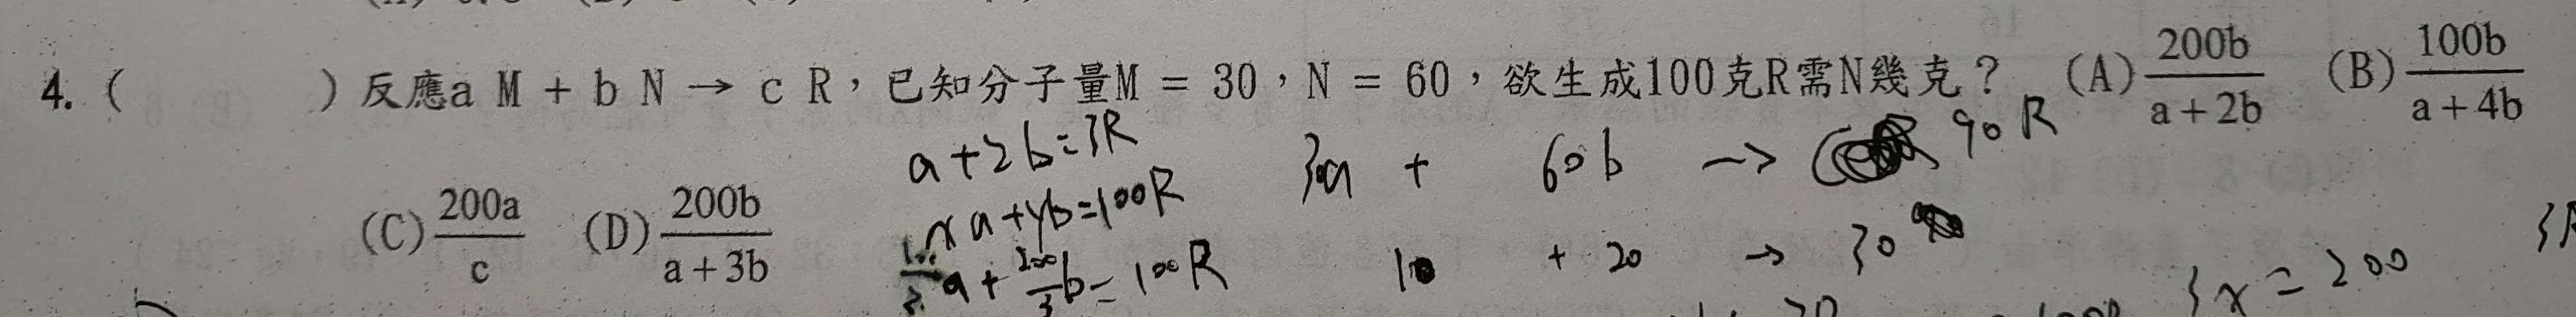 4. (　　　) 反應a M + b N → c R，已知分子量M = 30，N = 60，欲生成100克R需N幾克？ (A) 200b/(a+2b) (B) 100b/(a+4b)
(C) 200a/c (D) 200b/(a+3b)
a+2b=3R
30a + 60b → 90R
xa+yb=100R
100/3 a + 200/3 b = 100R
10 + 20 → 30
3x=200